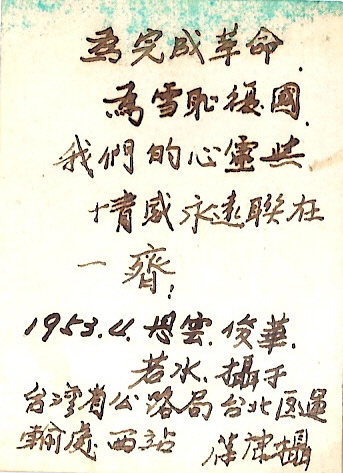 為完成革命.
為雪恥復國.
我們的心靈与
情感永遠聯在
一齊;
1953.4. 思雲. 俊華.
若水. 攝于
台灣省公路局台北区運
輸處西站 攝